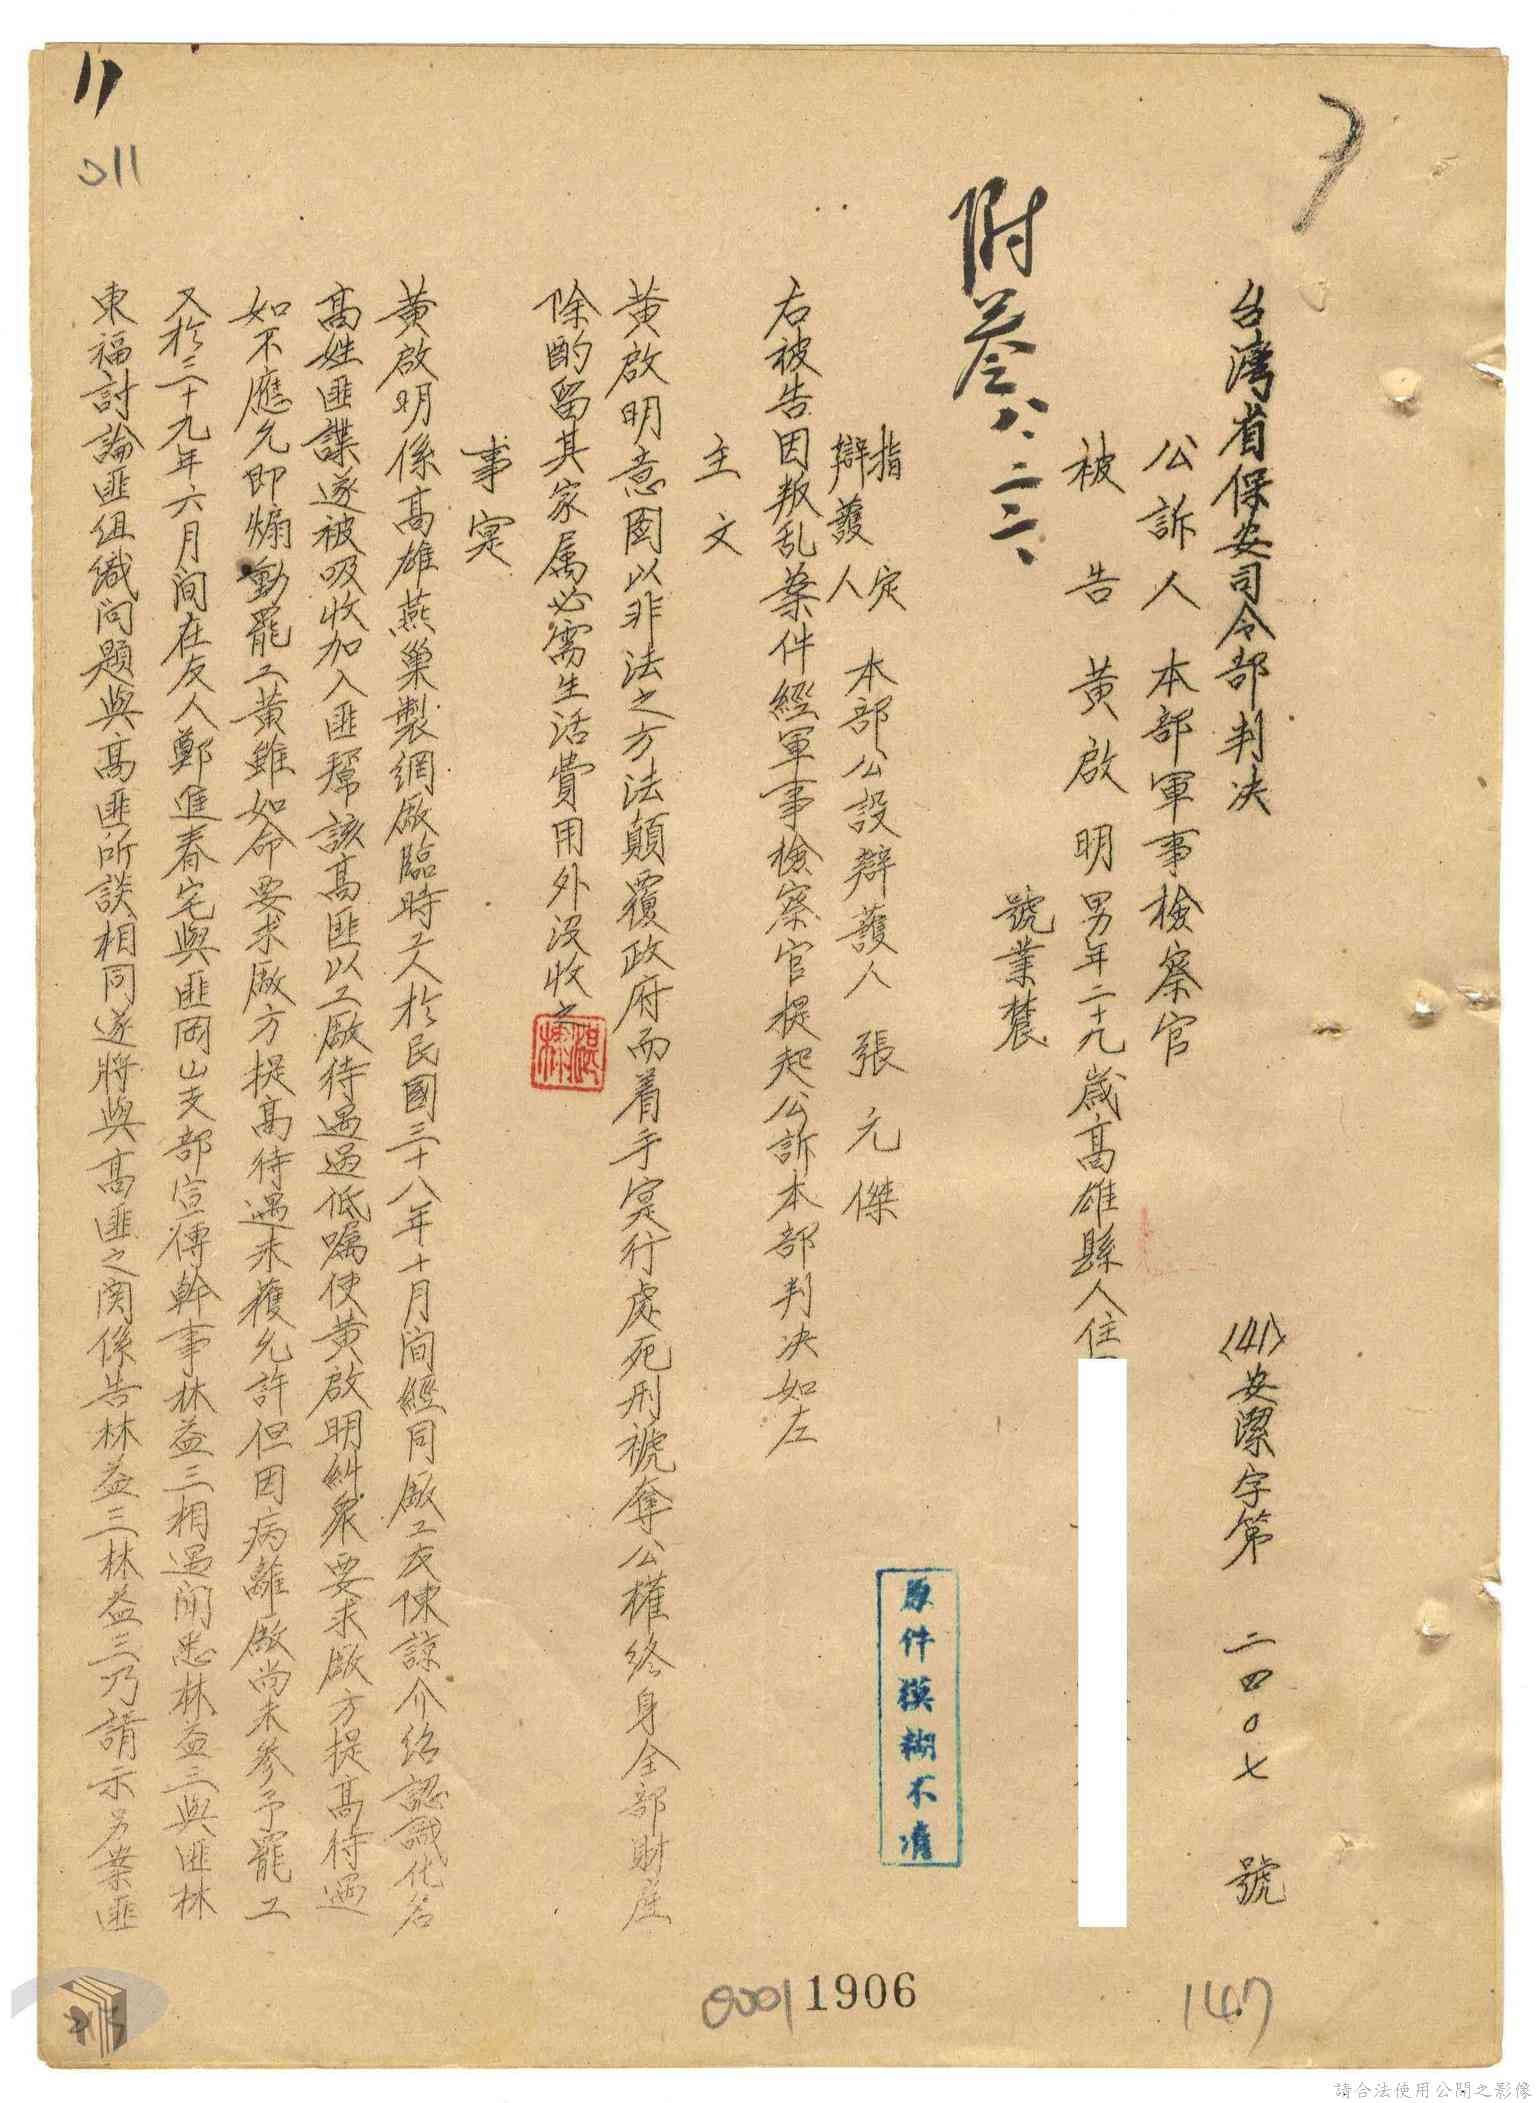 台灣省保安司令部判决
(41)安潔字第二四0七號
公訴人 本部軍事檢察官
被告 黄啟明 男年二十九歲高雄縣人住
號業農
附叁八、二六、
指定
辯護人 本部公設辯護人 張元傑
右被告因叛乱案件經軍事檢察官提起公訴本部判决如左
主文
黄啟明意圖以非法之方法顛覆政府而着手实行處死刑褫奪公權終身全部財産
除酌留其家属必需生活費用外没收之
事实
黄啟明係高雄燕巢製網廠臨時工人於民國三十八年十月间經同廠工友陳諒介绍認識化名
高姓匪諜遂被吸收加入匪幫該高匪以工廠待遇過低嘱使黄啟明糾衆要求廠方提高待遇
如不應允即煽動罷工黄雖如命要求廠方提高待遇未獲允許但因病離廠尚未參予罷工
又於三十九年六月间在友人鄭進春宅與匪岡山支部宣傳幹事林益三相遇聞悉林益三與匪林
東福討論匪组織问題與高匪所談相同遂將與高匪之関係告林益三林益三乃請示另案匪
原件模糊不清
11
011
0001
1906
147
請合法使用公開之影像